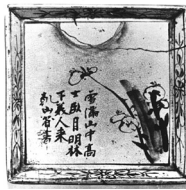 雪滿山中高
士臥月明林
下美人来
乾山省書